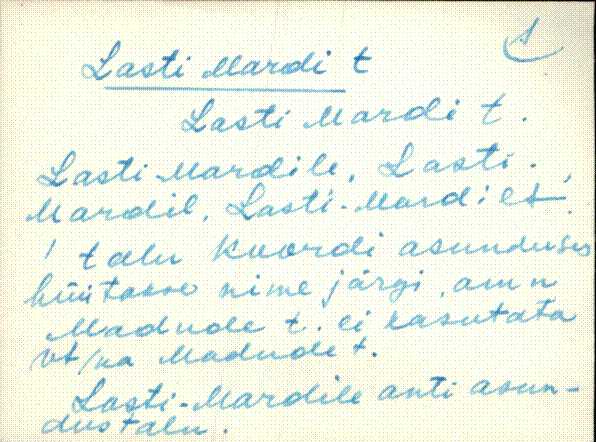 1
Lasti Mardi t
Lasti Mardi t.
Lasti-Mardile, Lasti-
Mardil, Lasti-Mardilt,
/ talu Kuordi asunduses
hüütasse nime järgi, am n
Madude t. ei kasutata
vt/na Madude t.
Lasti-Mardile anti asun-
dustalu.